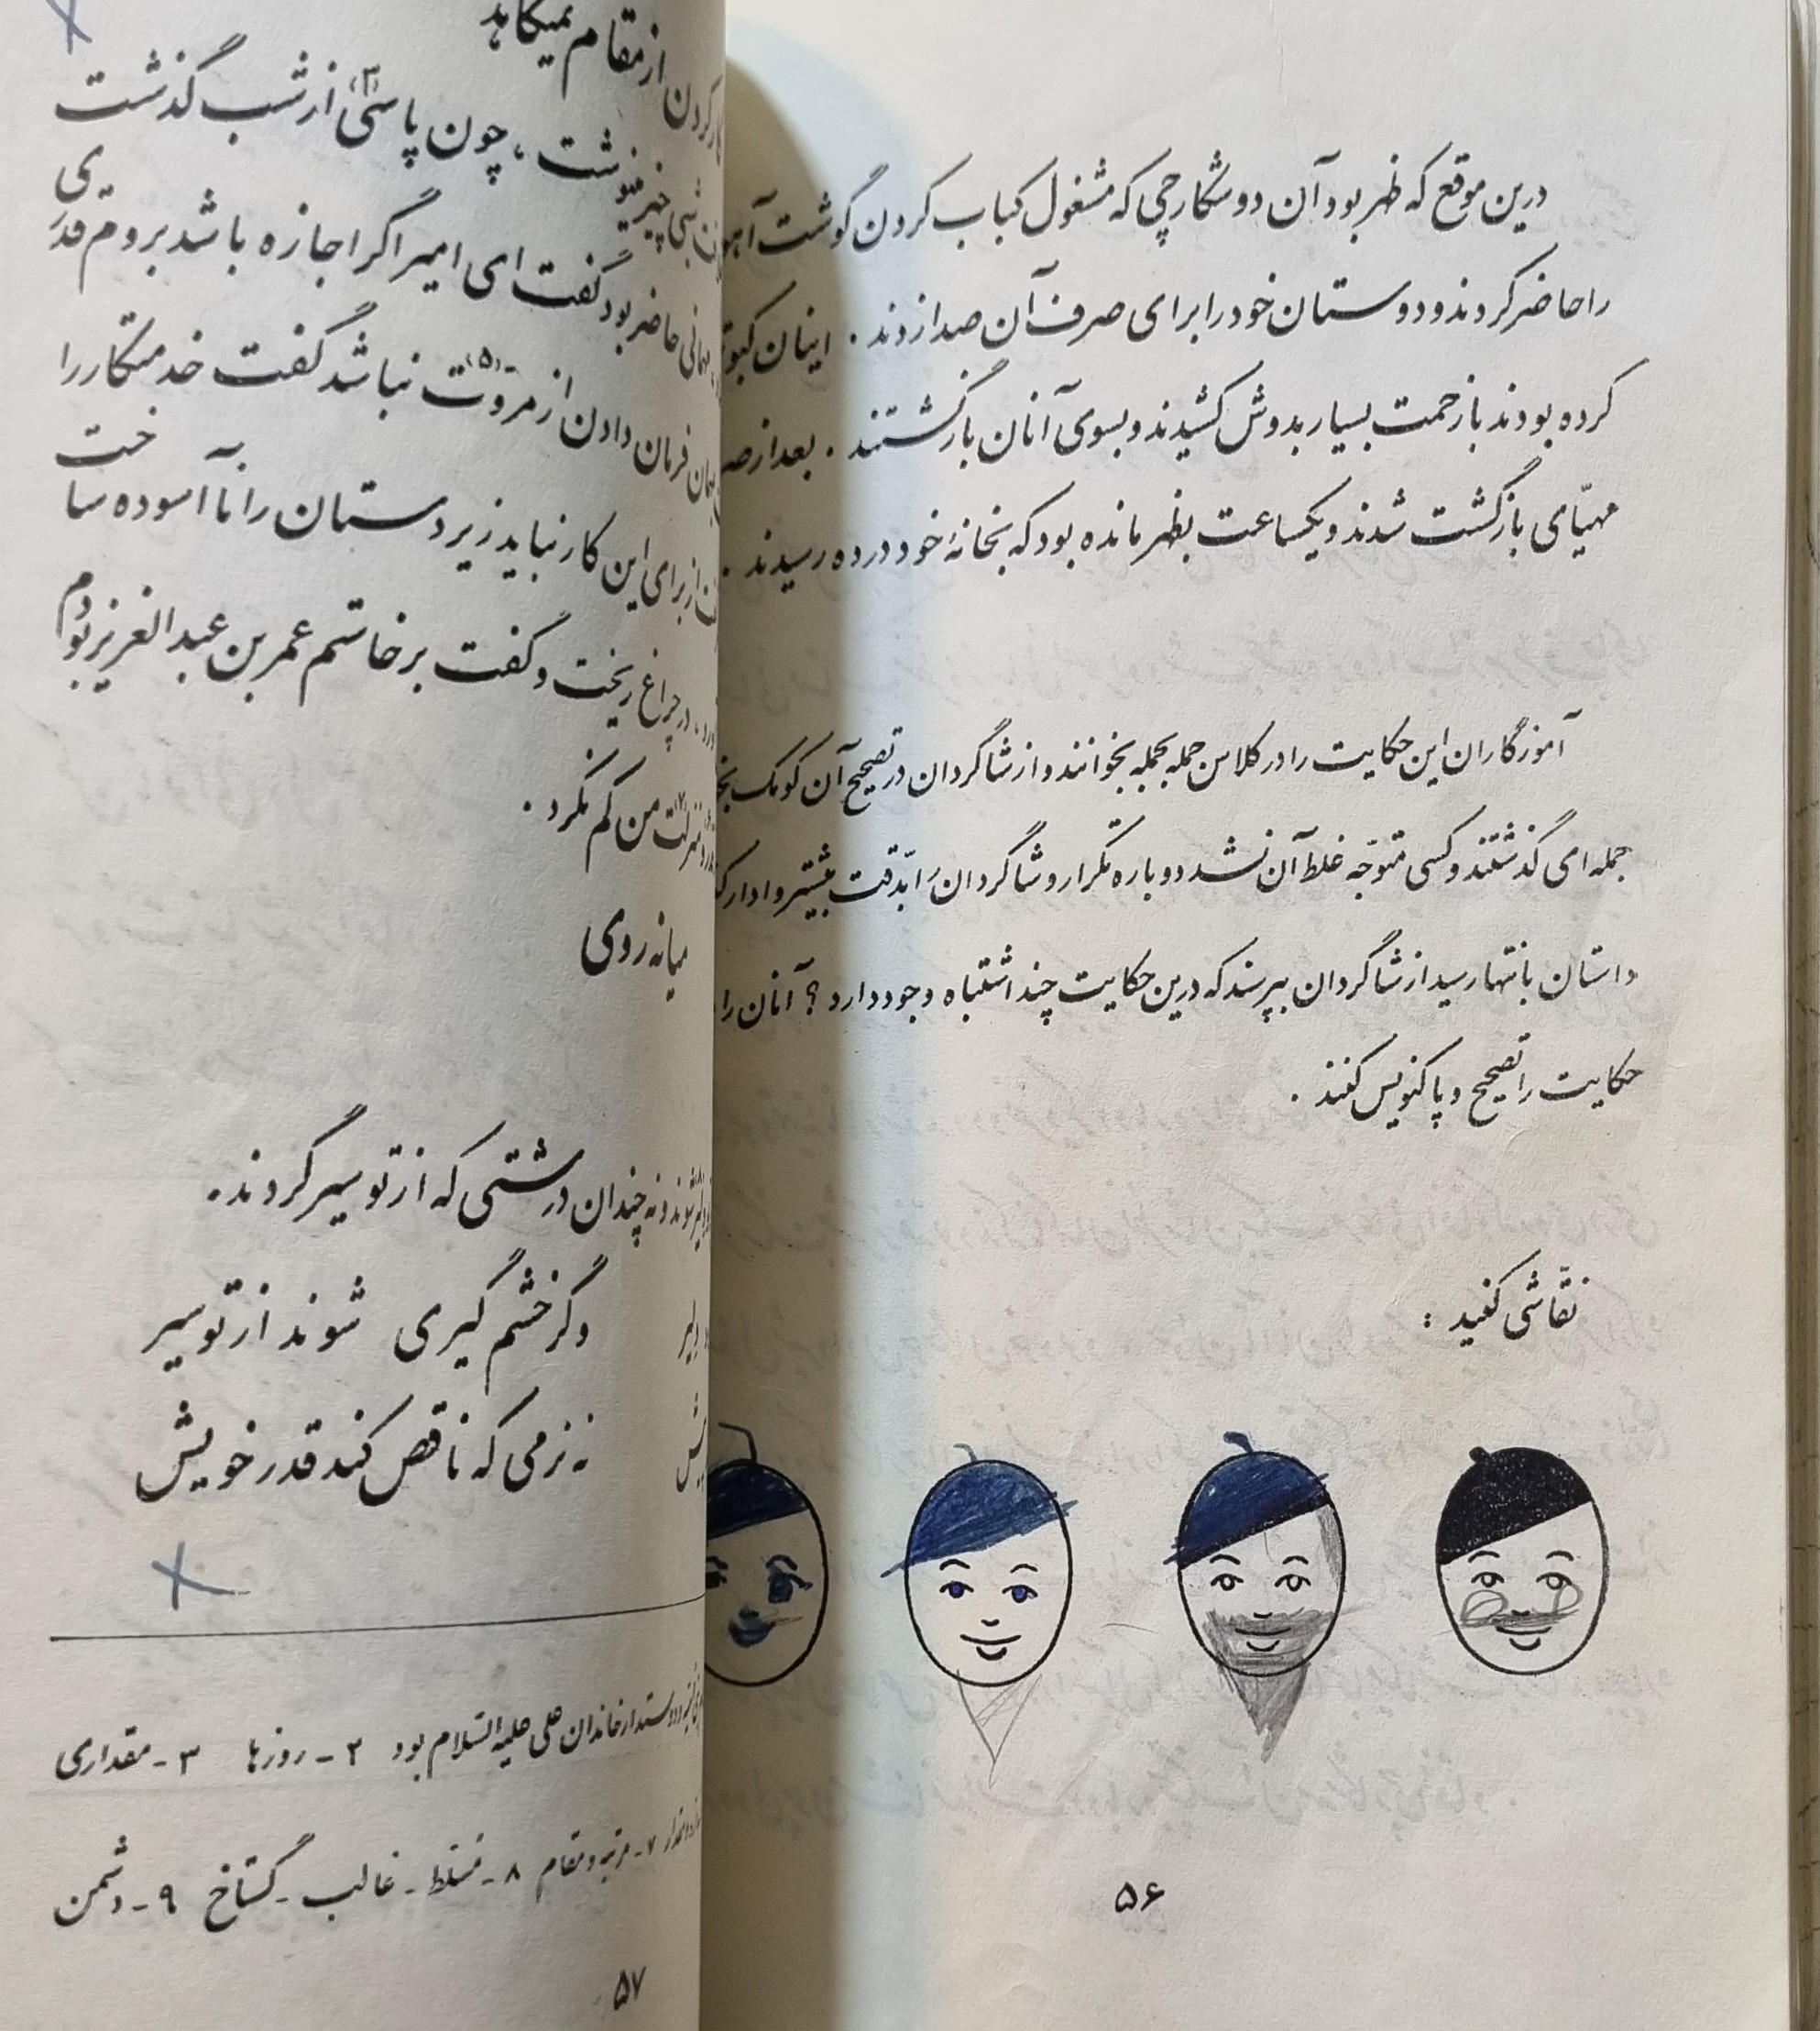 درین موقع که ظهر بود آن دو شکارچی که مشغول کباب کردن گوشت آهو
را حاضر کردند و دوستان خود را برای صرف آن صدا زدند . اینان
کرده بودند با زحمت بسیار بدوش کشیدند و بسوی آنان بازگشتند . بعد از
مهیّای بازگشت شدند و یکساعت بظهر مانده بود که بخانهٔ خود در ده رسیدند .
آموزگاران این حکایت را در کلاس جمله بجمله بخوانند و از شاگردان در تصحیح آن کومک
جمله ای گذشتند و کسی متوجّه غلط آن نشد دوباره تکرار و شاگردان را بدقّت بیشتر وادار
داستان بانتها رسید از شاگردان بپرسند که درین حکایت چند اشتباه وجود دارد ؟ آنان را
حکایت را تصحیح و پاکنویس کنند .
نقّاشی کنید :
۵۶
کردن از مقام میکاهد
شبی چیز مینوشت ، چون پاسی (۳) از شب گذشت
حاضر بود گفت ای امیر اگر اجازه باشد بروم قدری
فرمان دادن از مروّت (۵) نباشد گفت خدمتکار را
از برای این کار نباید زیردستان را ناآسوده ساخت
در چراغ ریخت و گفت برخاستم عمر بن عبدالعزیز بودم
منزلت (۷) من کم نکرد .
میانه روی
شوند و نه چندان درشتی که از تو سیر گردند .
وگر خشم گیری شوند از تو سیر
نه نرمی که ناقص کند قدر خویش
دوستدار خاندان علی علیه السّلام بود ۲ - روزها ۳ - مقداری
۷ - مرتبه و مقام ۸ - مسّلط - غالب - گستاخ ۹ - دشمن
۵۷